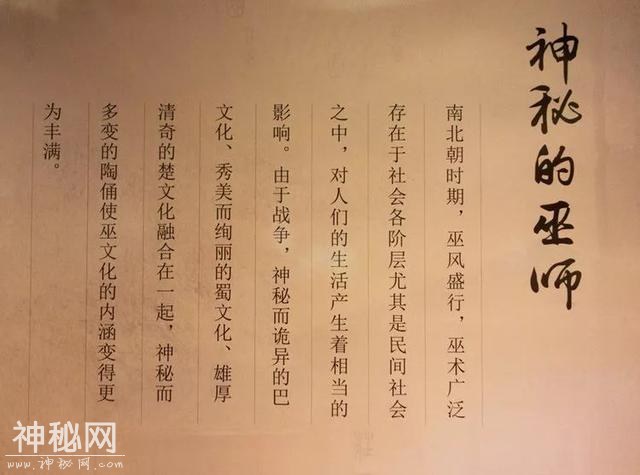 神秘的巫师
南北朝时期，巫风盛行，巫术广泛
存在于社会各阶层尤其是民间社会
之中，对人们的生活产生着相当的
影响。由于战争，神秘而诡异的巴
文化、秀美而绚丽的蜀文化、雄厚
清奇的楚文化融合在一起，神秘而
多变的陶俑使巫文化的内涵变得更
为丰满。
神秘网
www.神秘网.com